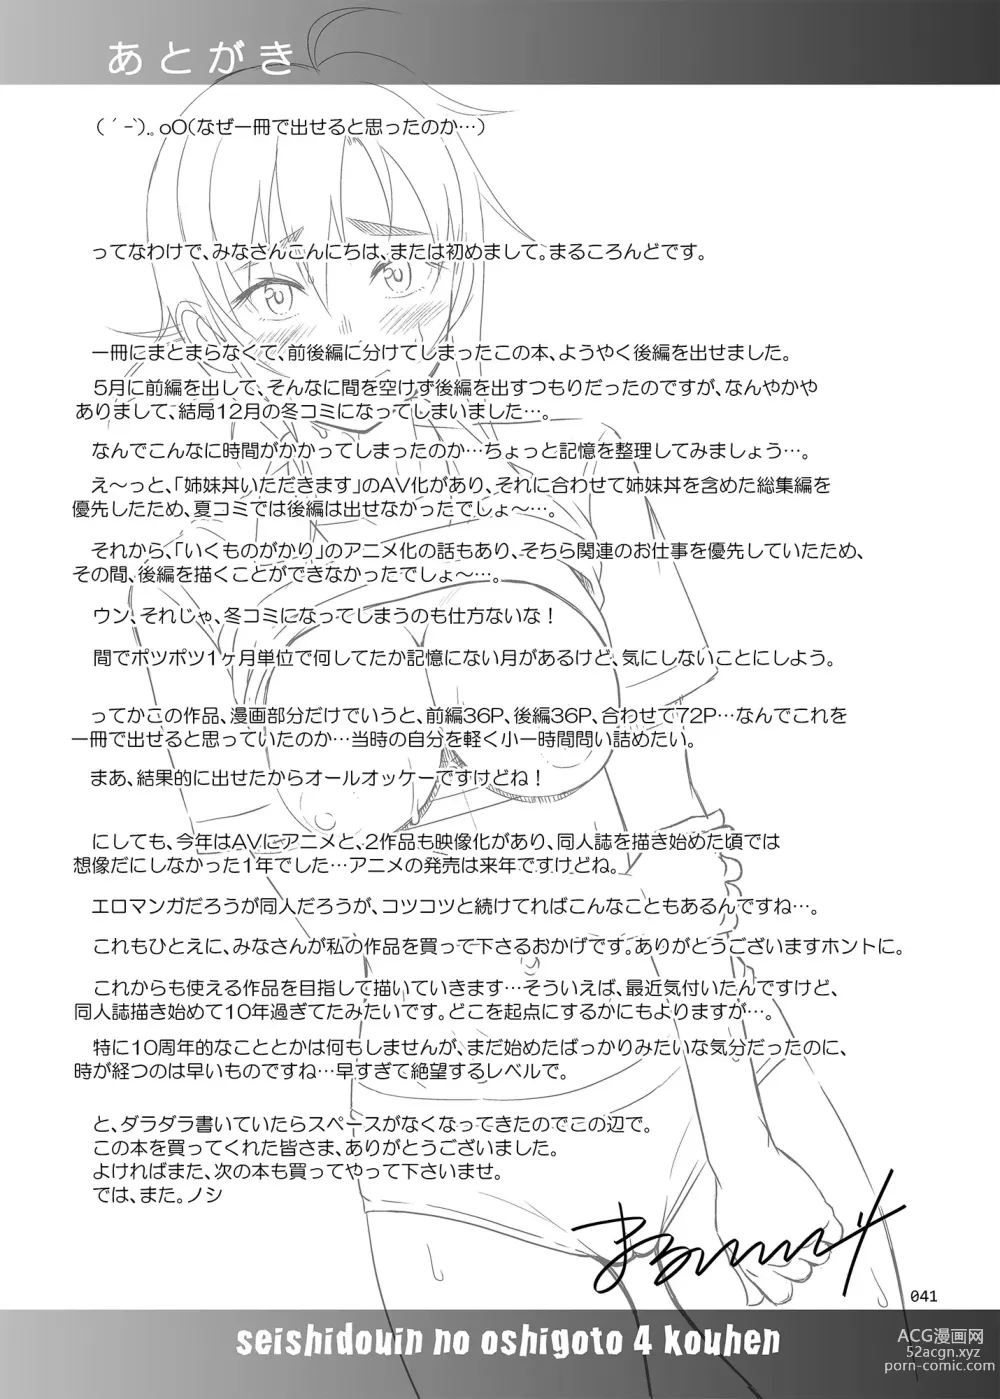 あとがき
( ´ -`).｡oO(なぜ一冊で出せると思ったのか…)
ってなわけで、みなさんこんにちは、または初めまして。まるころんどです。
一冊にまとまらなくて、前後編に分けてしまったこの本、ようやく後編を出せました。
5月に前編を出して、そんなに間を空けず後編を出すつもりだったのですが、なんやかや
ありまして、結局12月の冬コミになってしまいました…。
なんでこんなに時間がかかってしまったのか…ちょっと記憶を整理してみましょう…。
え〜っと、「姉妹丼いただきます」のAV化があり、それに合わせて姉妹丼を含めた総集編を
優先したため、夏コミでは後編は出せなかったでしょ〜…。
それから、「いくものがかり」のアニメ化の話もあり、そちら関連のお仕事を優先していたため、
その間、後編を描くことができなかったでしょ〜…。
ウン、それじゃ、冬コミになってしまうのも仕方ないな！
間でポツポツ1ヶ月単位で何してたか記憶にない月があるけど、気にしないことにしよう。
ってかこの作品、漫画部分だけでいうと、前編36P、後編36P、合わせて72P…なんでこれを
一冊で出せると思っていたのか…当時の自分を軽く小一時間問い詰めたい。
まあ、結果的に出せたからオールオッケーですけどね！
にしても、今年はAVにアニメと、2作品も映像化があり、同人誌を描き始めた頃では
想像だにしなかった1年でした…アニメの発売は来年ですけどね。
エロマンガだろうが同人だろうが、コツコツと続けてればこんなこともあるんですね…。
これもひとえに、みなさんが私の作品を買って下さるおかげです。ありがとうございますホントに。
これからも使える作品を目指して描いていきます…そういえば、最近気付いたんですけど、
同人誌描き始めて10年過ぎてたみたいです。どこを起点にするかにもよりますが…。
特に10周年的なこととかは何もしませんが、まだ始めたばっかりみたいな気分だったのに、
時が経つのは早いものですね…早すぎて絶望するレベルで。
と、ダラダラ書いていたらスペースがなくなってきたのでこの辺で。
この本を買ってくれた皆さま、ありがとうございました。
よければまた、次の本も買ってやって下さいませ。
では、また。ノシ
041
seishidouin no oshigoto 4 kouhen
ACG漫画网
52acgn.xyz
porn-comic.com